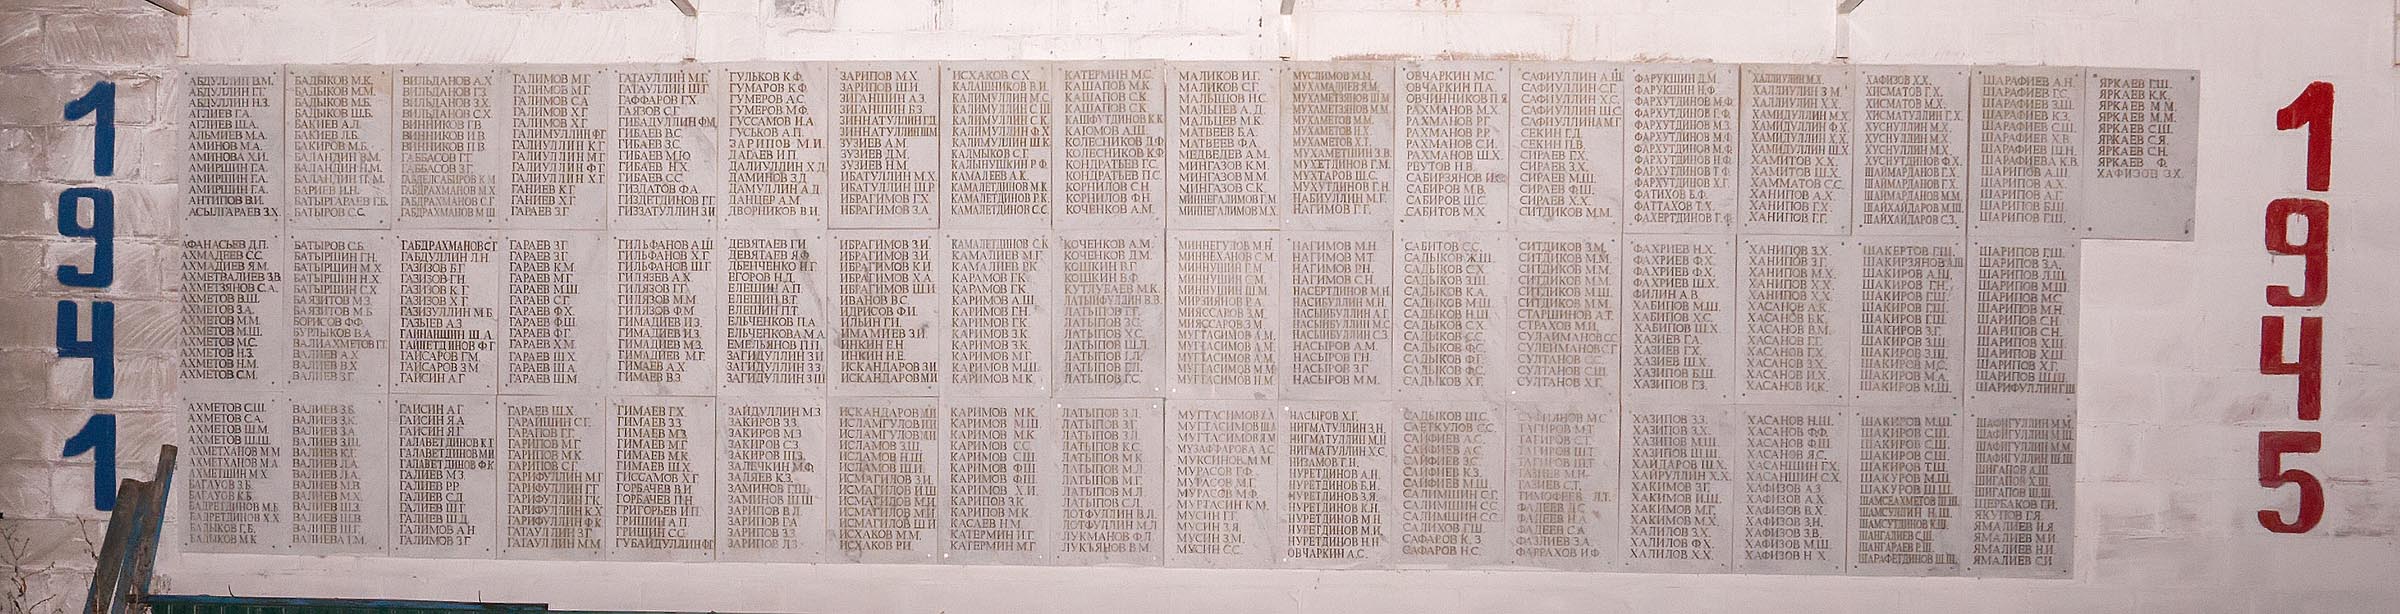 1941
АБДУЛЛИН В.М.
АБДУЛЛИН Г.Г.
АБДУЛЛИН Н.З.
АГЛИЕВ Г.А.
АГЛИЕВ Ш.А.
АЛЬМИЕВ М.А.
АМИНОВ М.А.
АМИНОВА Х.И.
АМИРШИН Г.А.
АМИРШИН Г.А.
АМИРШИН Г.А.
АНТИПОВ В.И.
АСЫЛГАРАЕВ З.Х.
АФАНАСЬЕВ Д.П.
АХМАДЕЕВ С.С.
АХМАДИЕВ Я.М.
АХМЕТВАЛИЕВ З.В.
АХМЕТЗЯНОВ С.А.
АХМЕТОВ В.Ш.
АХМЕТОВ З.А.
АХМЕТОВ М.М.
АХМЕТОВ М.Ш.
АХМЕТОВ М.С.
АХМЕТОВ Н.З.
АХМЕТОВ Н.М.
АХМЕТОВ С.М.
АХМЕТОВ С.Ш.
АХМЕТОВ С.А.
АХМЕТОВ Ш.М.
АХМЕТОВ Ш.Ш.
АХМЕТХАНОВ М.М.
АХМЕТХАНОВ М.А.
АХМЕТШИН М.Х.
БАГАУОВ З.Б.
БАГАУОВ К.Б.
БАДРЕТДИНОВ М.Б.
БАДРЕТДИНОВ Х.Х.
БАДЫКОВ Г.Б.
БАДЫКОВ М.К.
БАДЫКОВ М.К.
БАДЫКОВ М.М.
БАДЫКОВ М.Б.
БАДЫКОВ Ш.Б.
БАКИЕВ А.Л.
БАКИЕВ Л.Б.
БАКИРОВ М.Б.
БАЛАНДИН В.М.
БАЛАНДИН Н.М.
БАЛАНДИН П.М.
БАРИЕВ И.Н.
БАТЫРГАРАЕВ Г.Б.
БАТЫРОВ С.С.
БАТЫРОВ С.Б.
БАТЫРШИН Г.Н.
БАТЫРШИН М.Х.
БАТЫРШИН Н.Х.
БАТЫРШИН С.Х.
БАЯЗИТОВ М.З.
БАЯЗИТОВ М.Б.
БОРИСОВ Ф.Ф.
БУРТЫКОВ В.А.
ВАЛИАХМЕТОВ Г.Г.
ВАЛИЕВ А.Х.
ВАЛИЕВ В.Х.
ВАЛИЕВ З.Г.
ВАЛИЕВ З.Б.
ВАЛИЕВ З.К.
ВАЛИЕВ З.А.
ВАЛИЕВ З.Ш.
ВАЛИЕВ К.Г.
ВАЛИЕВ Л.А.
ВАЛИЕВ Л.А.
ВАЛИЕВ М.В.
ВАЛИЕВ М.Х.
ВАЛИЕВ З.Ш.
ВАЛИЕВ Ш.В.
ВАЛИЕВ Ш.Г.
ВАЛИЕВА Г.М.
ВИЛЬДАНОВ А.Х.
ВИЛЬДАНОВ Г.З.
ВИЛЬДАНОВ З.Х.
ВИЛЬДАНОВ С.Х.
ВИННИКОВ Г.В.
ВИННИКОВ И.В.
ВИННИКОВ П.В.
ГАББАСОВ Г.Г.
ГАББАСОВ З.Г.
ГАБДЕЛГАБИРОВ К.М.
ГАБДРАХМАНОВ М.Х.
ГАБДРАХМАНОВ С.Г.
ГАБДРАХМАНОВ М.Ш.
ГАБДРАХМАНОВ С.Г.
ГАБДУЛЛИН Л.Н.
ГАЗИЗОВ Б.Г.
ГАЗИЗОВ Г.Н.
ГАЗИЗОВ К.Г.
ГАЗИЗОВ Х.Г.
ГАЗИЗУЛЛИН М.Б.
ГАЗЫЕВ А.З.
ГАЙНУЛЛИН Ш.А.
ГАЙСАРОВ Г.М.
ГАЙСАРОВ З.М.
ГАЙСИН А.Г.
ГАЙСИН А.Г.
ГАЙСИН Я.А.
ГАЙСИН Я.Г.
ГАЛАВЕТДИНОВ К.Г.
ГАЛАВЕТДИНОВ М.Ш.
ГАЛАВЕТДИНОВ Ф.К.
ГАЛИЕВ М.З.
ГАЛИЕВ Р.Р.
ГАЛИЕВ С.Д.
ГАЛИЕВ Ш.Г.
ГАЛИЕВ Ш.Д.
ГАЛИМОВ А.Н.
ГАЛИМОВ З.Г.
ГАЛИМОВ М.Г.
ГАЛИМОВ М.Г.
ГАЛИМОВ С.А.
ГАЛИМОВ Х.Г.
ГАЛИМОВ Х.Г.
ГАЛИМУЛЛИН Ф.Г.
ГАЛИУЛЛИН К.Г.
ГАЛИУЛЛИН М.Г.
ГАЛИУЛЛИН Ф.Г.
ГАЛИУЛЛИН Х.Г.
ГАНИЕВ К.Г.
ГАНИЕВ Х.Г.
ГАРАЕВ З.Г.
ГАРАЕВ З.Г.
ГАРАЕВ З.Г.
ГАРАЕВ К.М.
ГАРАЕВ М.Г.
ГАРАЕВ М.Ш.
ГАРАЕВ С.Г.
ГАРАЕВ Ф.Х.
ГАРАЕВ Ф.Ш.
ГАРАЕВ Ф.Г.
ГАРАЕВ Х.М.
ГАРАЕВ Ш.Х.
ГАРАЕВ Ш.А.
ГАРАЕВ Ш.М.
ГАРАЕВ Ш.Х.
ГАРАЙШИН С.Г.
ГАРАПОВ Г.Г.
ГАРИПОВ М.Г.
ГАРИПОВ М.К.
ГАРИПОВ С.Г.
ГАРИФУЛЛИН М.Г.
ГАРИФУЛЛИН Г.Г.
ГАРИФУЛЛИН Г.К.
ГАРИФУЛЛИН К.Х.
ГАРИФУЛЛИН Ф.К.
ГАТАУЛЛИН З.Г.
ГАТАУЛЛИН М.М.
ГАТАУЛЛИН М.Г.
ГАТАУЛЛИН Ш.Г.
ГАФФАРОВ Г.Х.
ГАЯЗОВ С.Г.
ГИБАДУЛЛИН Ф.М.
ГИБАЕВ В.С.
ГИБАЕВ З.С.
ГИБАЕВ М.Ю.
ГИБАЕВ Н.Х.
ГИБАЕВ С.С.
ГИЗДАТОВ Ф.А.
ГИЗДЕТДИНОВ Г.Г.
ГИЗЗАТУЛЛИН З.И.
ГИЛЬФАНОВ А.Ш.
ГИЛЬФАНОВ Х.Г.
ГИЛЬФАНОВ Ш.Г.
ГИЛЯЗЕВ А.Х.
ГИЛЯЗОВ Г.М.
ГИЛЯЗОВ М.М.
ГИЛЯЗОВ Ф.М.
ГИМАДИЕВ И.З.
ГИМАДИЕВ И.З.
ГИМАДИЕВ М.З.
ГИМАДИЕВ М.Г.
ГИМАЕВ А.Х.
ГИМАЕВ В.З.
ГИМАЕВ Г.Х.
ГИМАЕВ З.Г.
ГИМАЕВ М.З.
ГИМАЕВ М.Г.
ГИМАЕВ М.К.
ГИМАЕВ Ш.Х.
ГИССАМОВ Х.Г.
ГОРБАЧЕВ В.И.
ГОРБАЧЕВ П.Н.
ГРИГОРЬЕВ И.П.
ГРИШИН А.П.
ГРИШИН С.С.
ГУБАЙДУЛЛИН Ф.Г.
ГУЛЬКОВ К.Ф.
ГУМАРОВ К.Ф.
ГУМЕРОВ А.С.
ГУМЕРОВ М.Ф.
ГУССАМОВ Н.А.
ГУСЬКОВ А.П.
ЗАРИПОВ М.И.
ДАГАЕВ И.П.
ДАЛИУЛЛИН Х.Д.
ДАМИНОВ З.Д.
ДАМУЛЛИН А.Д.
ДАНЦЕР А.М.
ДВОРНИКОВ В.И.
ДЕВЯТАЕВ Г.И.
ДЕВЯТАЕВ Я.Ф.
ДЬЯЧЕНКО И.Г.
ЕГОРОВ Н.Д.
ЕЛЕШИН А.П.
ЕЛЕШИН В.Т.
ЕЛЕШИН П.Т.
ЕЛЬЧЕНКОВ П.А.
ЕЛЬЧЕНКОВА М.А.
ЕМЕЛЬЯНОВ П.П.
ЗАГИДУЛЛИН З.И.
ЗАГИДУЛЛИН З.З.
ЗАГИДУЛЛИН З.Ш.
ЗАЙДУЛЛИН М.З.
ЗАКИРОВ З.З.
ЗАКИРОВ М.З.
ЗАКИРОВ С.З.
ЗАКИРОВ Ш.З.
ЗАЛЕЧКИН М.Ф.
ЗАЛЯЕВ К.З.
ЗАМИНОВ Г.Ш.
ЗАМИНОВ Ш.Ш.
ЗАРИПОВ В.Л.
ЗАРИПОВ Г.А.
ЗАРИПОВ З.З.
ЗАРИПОВ Л.З.
ЗАРИПОВ М.Х.
ЗАРИПОВ Ш.И.
ЗИГАНШИН А.З.
ЗИГАНШИН Б.З.
ЗИННАТУЛЛИН Г.Д.
ЗИННАТУЛЛИН Ш.М.
ЗУЗИЕВ А.М.
ЗУЗИЕВ Д.М.
ЗУЗИЕВ Н.М.
ИБАТУЛЛИН М.Х.
ИБАТУЛЛИН Ш.Р.
ИБРАГИМОВ Г.Х.
ИБРАГИМОВ З.А.
ИБРАГИМОВ З.И.
ИБРАГИМОВ З.И.
ИБРАГИМОВ К.И.
ИБРАГИМОВ Х.А.
ИБРАГИМОВ Ш.И.
ИВАНОВ В.С.
ИДРИСОВ Ф.И.
ИЛЬИН Г.И.
ИМАМИЕВ З.И.
ИНКИН Е.Н.
ИНКИН Н.Е.
ИСКАНДАРОВ З.И.
ИСКАНДАРОВ М.И.
ИСКАНДАРОВ М.И.
ИСЛАМГУЛОВ И.И.
ИСЛАМГУЛОВ М.И.
ИСЛАМОВ З.Ш.
ИСЛАМОВ Г.Ш.
ИСЛАМОВ Ш.И.
ИСМАГИЛОВ З.И.
ИСМАГИЛОВ И.Ш.
ИСМАГИЛОВ М.И.
ИСМАГИЛОВ М.Х.
ИСМАГИЛОВ Ш.И.
ИСХАКОВ М.М.
ИСХАКОВ Р.И.
ИСХАКОВ С.Х.
КАЛАШНИКОВ В.И.
КАЛИМУЛЛИН М.С.
КАЛИМУЛЛИН Г.К.
КАЛИМУЛЛИН С.К.
КАЛИМУЛЛИН Ф.Х.
КАЛИМУЛЛИН Ш.К.
КАДМЫКОВ С.Г.
КАЛЯНУШКИН Р.Ф.
КАМАЛЕЕВ А.К.
КАМАЛЕТДИНОВ М.К.
КАМАЛЕТДИНОВ Р.К.
КАМАЛЕТДИНОВ С.С.
КАМАЛЕТДИНОВ С.К.
КАМАЛИЕВ М.Г.
КАМАЛИЕВ Р.К.
КАРАМОВ Г.К.
КАРАМОВ Г.К.
КАРИМОВ А.Ш.
КАРИМОВ Г.Н.
КАРИМОВ Г.К.
КАРИМОВ З.К.
КАРИМОВ З.К.
КАРИМОВ М.Г.
КАРИМОВ М.Ш.
КАРИМОВ М.К.
КАРИМОВ М.К.
КАРИМОВ М.Ш.
КАРИМОВ М.К.
КАРИМОВ С.С.
КАРИМОВ С.Ш.
КАРИМОВ Ф.Ш.
КАРИМОВ Ф.Ш.
КАРИМОВ Х.И.
КАРИПОВ З.К.
КАРИПОВ М.К.
КАСАЕВ Н.М.
КАТЕРМИН И.Г.
КАТЕРМИН М.Г.
КАТЕРМИН М.С.
КАШАПОВ М.К.
КАШАПОВ С.К.
КАШАПОВ С.К.
КАШФУТДИНОВ К.К.
КАЮМОВ А.Ш.
КОЛЕСНИКОВ Д.Ф.
КОЛЕСНИКОВ К.Ф.
КОНДРАТЬЕВ Г.С.
КОНДРАТЬЕВ П.С.
КОРНИЛОВ С.Н.
КОРНИЛОВ Ф.Н.
КОЧЕНКОВ А.М.
КОЧЕНКОВ А.М.
КОЧЕНКОВ Д.М.
КОШКИН В.Г.
КОШКИН Б.Ф.
КУТЛУБАЕВ М.К.
ЛАТЫПФУЛЛИН В.В.
ЛАТЫПОВ Г.Г.
ЛАТЫПОВ З.С.
ЛАТЫПОВ Х.С.
ЛАТЫПОВ Ш.Л.
ЛАТЫПОВ Г.Л.
ЛАТЫПОВ Г.Г.
ЛАТЫПОВ Г.С.
ЛАТЫПОВ З.Л.
ЛАТЫПОВ З.Г.
ЛАТЫПОВ З.Л.
ЛАТЫПОВ К.С.
ЛАТЫПОВ Л.Л.
ЛАТЫПОВ М.Л.
ЛАТЫПОВ М.Г.
ЛАТЫПОВ М.Л.
ЛАТЫПОВ С.Л.
ЛОТФУЛЛИН В.Л.
ЛОТФУЛЛИН М.Л.
ЛУКМАНОВ Ф.Л.
ЛУКЪЯНОВ В.М.
МАЛИКОВ И.Г.
МАЛИКОВ С.Г.
МАЛЫШОВ Н.С.
МАЛЬЦЕВ А.Д.
МАЛЬЦЕВ М.К.
МАТВЕЕВ Б.А.
МАТВЕЕВ Ф.А.
МЕДВЕДЕВ А.М.
МИНГАЗОВ К.М.
МИНГАЗОВ М.М.
МИНГАЗОВ С.К.
МИННЕГАЛИМОВ Г.М.
МИННЕГАЛИМОВ М.Х.
МИННЕГУЛОВ М.Н.
МИННЕХАНОВ С.М.
МИННУШИН Г.М.
МИННУШИН С.М.
МИННУШИН Ш.М.
МИРЗИЯНОВ Р.А.
МИЯССАРОВ З.М.
МИЯССАРОВ М.М.
МУГТАСИМОВ А.М.
МУГТАСИМОВ А.М.
МУГТАСИМОВ З.М.
МУГТАСИМОВ М.М.
МУГТАСИМОВ Н.М.
МУГТАСИМОВ З.А.
МУГТАСИМОВ Ш.М.
МУГТАСИМОВ Я.М.
МУЗАФФАРОВА А.С.
МУКСИНОВ М.М.
МУРАСОВ Г.Ф.
МУРАСОВ М.Г.
МУРАСОВ М.Ф.
МУРТАСИН К.М.
МУСИН Г.Г.
МУСИН З.Я.
МУСИН З.М.
МУСИН С.С.
МУСЛИМОВ М.М.
МУХАМАДИЕВ Я.М.
МУХАМЕТЗЯНОВ Ш.М.
МУХАМЕТЗЯНОВ Ш.М.
МУХАМЕТОВ М.М.
МУХАМЕТОВ И.Х.
МУХАМЕТОВ Х.Г.
МУХАМЕТШИН В.З.
МУХЕТДИНОВ Г.М.
МУХТАРОВ Ш.С.
МУХУТДИНОВ Г.Н.
НАБИУЛЛИН М.Г.
НАГИМОВ Г.Г.
НАГИМОВ М.Н.
НАГИМОВ М.Г.
НАГИМОВ Р.Н.
НАГИМОВ С.Н.
НАСЕРТДИНОВ М.Н.
НАСИБУЛЛИН М.Н.
НАСЫЙБУЛЛИН А.Г.
НАСЫЙБУЛЛИН М.С.
НАСЫЙБУЛЛИН С.З.
НАСЫРОВ А.М.
НАСЫРОВ Г.Н.
НАСЫРОВ З.Г.
НАСЫРОВ М.М.
НАСЫРОВ Х.Г.
НИГМАТУЛЛИН З.Н.
НИГМАТУЛЛИН М.Н.
НИГМАТУЛЛИН Х.С.
НИЗАМОВ Г.Н.
НУРЕТДИНОВ А.Н.
НУРЕТДИНОВ Б.И.
НУРЕТДИНОВ З.Я.
НУРЕТДИНОВ К.Н.
НУРЕТДИНОВ М.Н.
НУРЕТДИНОВ М.И.
НУРЕТДИНОВ Н.Н.
ОВЧАРКИН А.С.
ОВЧАРКИН М.С.
ОВЧАРКИН П.А.
ОВЧИННИКОВ П.Я.
РАХМАНОВ М.Х.
РАХМАНОВ Р.Р.
РАХМАНОВ Р.Р.
РАХМАНОВ С.И.
РАХМАНОВ Ш.Х.
РЕУТОВ Н.В.
САБИРЗЯНОВ И.С.
САБИРОВ М.В.
САБИРОВ Ш.С.
САБИТОВ М.Х.
САБИТОВ С.С.
САДЫКОВ Ж.Ш.
САДЫКОВ С.Х.
САДЫКОВ З.Ш.
САДЫКОВ К.А.
САДЫКОВ М.Ш.
САДЫКОВ Н.Ш.
САДЫКОВ С.Х.
САДЫКОВ С.Х.
САДЫКОВ С.С.
САДЫКОВ Ф.Г.
САДЫКОВ Ф.С.
САДЫКОВ Х.Г.
САДЫКОВ Ш.С.
САЕТКУЛОВ С.С.
САЙФИЕВ А.С.
САЙФИЕВ Г.С.
САЙФИЕВ З.С.
САЙФИЕВ К.З.
САЙФИЕВ М.Ш.
САЛИМШИН С.Г.
САЛИМШИН С.С.
САЛИМШИН С.С.
САЛИХОВ Г.Ш.
САФАРОВ К.З.
САФАРОВ Н.С.
САФИУЛЛИН А.Ш.
САФИУЛЛИН Г.С.
САФИУЛЛИН Х.С.
САФИУЛЛИН Ш.С.
САФИУЛЛИНА М.Г.
СЕКИН Г.Д.
СЕКИН П.В.
СИРАЕВ Г.Х.
СИРАЕВ З.Х.
СИРАЕВ М.Ш.
СИРАЕВ Ф.Ш.
СИРАЕВ Х.Х.
СИТДИКОВ М.М.
СИТДИКОВ З.М.
СИТДИКОВ М.М.
СИТДИКОВ М.М.
СИТДИКОВ М.М.
СИТДИКОВ М.Ш.
СИТДИКОВ М.М.
СТАРШИНОВ А.Т.
СТРАХОВ М.И.
СУЛАЙМАНОВ С.С.
СУЛЕЙМАНОВ С.Г.
СУЛТАНОВ С.С.
СУЛТАНОВ С.Ш.
СУЛТАНОВ Х.Г.
ТАГИРОВ М.Т.
ТАГИРОВ С.Т.
ТАГИРОВ Ш.Т.
ТИМОФЕЕВ Л.Т.
ФАДЕЕВ Д.С.
ФАДЕЕВ Н.А.
ФАДЕЕВ С.А.
ФАЗИЕВ З.А.
ФАРРАХОВ И.Ф.
ФАРУКШИН Д.М.
ФАРУКШИН Н.Ф.
ФАРХУТДИНОВ М.Ф.
ФАРХУТДИНОВ Г.Ф.
ФАРХУТДИНОВ М.З.
ФАРХУТДИНОВ М.Ф.
ФАРХУТДИНОВ М.Ф.
ФАРХУТДИНОВ Н.Ф.
ФАРХУТДИНОВ Т.Ф.
ФАРХУТДИНОВ Х.Г.
ФАТИХОВ Б.Ф.
ФАТТАХОВ Т.Х.
ФАХЕРТДИНОВ Г.Ф.
ФАХРИЕВ Н.Х.
ФАХРИЕВ Ф.Х.
ФАХРИЕВ Ф.Х.
ФАХРИЕВ Ш.Х.
ФИЛИН А.В.
ХАБИПОВ М.Ш.
ХАБИПОВ Х.С.
ХАБИПОВ Ш.Х.
ХАЗИЕВ Г.А.
ХАЗИЕВ Г.Х.
ХАЗИЕВ Ш.Х.
ХАЗИПОВ В.Ш.
ХАЗИПОВ Г.З.
ХАЗИПОВ З.З.
ХАЗИПОВ З.Х.
ХАЗИПОВ М.Ш.
ХАЗИПОВ Ш.Ш.
ХАЙДАРОВ Ш.Х.
ХАЙРУЛЛИН Х.Х.
ХАКИМОВ З.Г.
ХАКИМОВ И.Ш.
ХАКИМОВ М.Г.
ХАКИМОВ М.Х.
ХАЛИЛОВ З.Х.
ХАЛИЛОВ Ф.Х.
ХАЛИЛОВ Х.Х.
ХАЛЛИУЛИН М.Х.
ХАЛЛИУЛИН З.М.
ХАЛЛИУЛИН Х.Х.
ХАМИДУЛЛИН М.Х.
ХАМИДУЛЛИН Ф.Х.
ХАМИДУЛЛИН Х.Х.
ХАМИДУЛЛИН Ш.Х.
ХАМИТОВ Х.Х.
ХАМИТОВ Ш.Х.
ХАММАТОВ С.С.
ХАНИПОВ А.Х.
ХАНИПОВ Г.Х.
ХАНИПОВ Г.Г.
ХАНИПОВ З.Х.
ХАНИПОВ З.Г.
ХАНИПОВ М.Х.
ХАНИПОВ Х.Х.
ХАНИПОВ Х.Х.
ХАСАНОВ А.К.
ХАСАНОВ В.Х.
ХАСАНОВ В.М.
ХАСАНОВ Г.Г.
ХАСАНОВ Г.Х.
ХАСАНОВ З.Х.
ХАСАНОВ И.Х.
ХАСАНОВ И.К.
ХАСАНОВ Н.Ш.
ХАСАНОВ Ф.Ф.
ХАСАНОВ Ф.Ш.
ХАСАНОВ Я.С.
ХАСАНШИН Г.Х.
ХАСАНШИН С.Х.
ХАФИЗОВ А.З.
ХАФИЗОВ А.Х.
ХАФИЗОВ В.Х.
ХАФИЗОВ З.Н.
ХАФИЗОВ З.В.
ХАФИЗОВ М.Ш.
ХАФИЗОВ Н.Х.
ХАФИЗОВ Х.Х.
ХИСМАТОВ Г.Х.
ХИСМАТОВ М.Х.
ХИСМАТУЛЛИН Г.Х.
ХУСНУЛЛИН М.Х.
ХУСНУЛЛИН М.Х.
ХУСНУЛЛИН М.Х.
ХУСНУТДИНОВ Ф.Х.
ШАЙМАРДАНОВ Г.Х.
ШАЙМАРДАНОВ Г.Х.
ШАЙМАРДАНОВ М.Х.
ШАЙХАЙДАРОВ М.Ш.
ШАЙХАЙДАРОВ С.З.
ШАКЕРТОВ Г.Ш.
ШАКИРЗЯНОВ А.Ш.
ШАКИРОВ А.Ш.
ШАКИРОВ Г.Н.
ШАКИРОВ Г.Ш.
ШАКИРОВ Г.Ш.
ШАКИРОВ Г.Ш.
ШАКИРОВ З.Г.
ШАКИРОВ З.Ш.
ШАКИРОВ З.Ш.
ШАКИРОВ М.С.
ШАКИРОВ М.А.
ШАКИРОВ М.Ш.
ШАКИРОВ М.Ш.
ШАКИРОВ С.Ш.
ШАКИРОВ С.Ш.
ШАКИРОВ С.Ш.
ШАКИРОВ Т.Ш.
ШАКУРОВ М.Ш.
ШАКУРОВ Ш.Ш.
ШАМСЕАХМЕТОВ Ш.Ш.
ШАМСУЛЛИН Н.Ш.
ШАМСУТДИНОВ К.Ш.
ШАНГАЛИЕВ С.Ш.
ШАНГАРАЕВ Г.Ш.
ШАРАФЕТДИНОВ Ш.Ш.
ШАРАФИЕВ А.Н.
ШАРАФИЕВ Г.С.
ШАРАФИЕВ З.Ш.
ШАРАФИЕВ К.З.
ШАРАФИЕВ С.Ш.
ШАРАФИЕВ Х.В.
ШАРАФИЕВ Ш.Н.
ШАРАФИЕВА К.В.
ШАРИПОВ А.Ш.
ШАРИПОВ А.Х.
ШАРИПОВ А.Г.
ШАРИПОВ В.Ш.
ШАРИПОВ Г.Ш.
ШАРИПОВ Г.Ш.
ШАРИПОВ З.А.
ШАРИПОВ Л.Ш.
ШАРИПОВ М.Ш.
ШАРИПОВ М.С.
ШАРИПОВ М.Н.
ШАРИПОВ С.Н.
ШАРИПОВ С.Н.
ШАРИПОВ Х.Ш.
ШАРИПОВ Х.Ш.
ШАРИПОВ Х.Г.
ШАРИПОВ Ш.Ш.
ШАРИФУЛЛИН Г.Ш.
ШАФИГУЛЛИН М.М.
ШАФИГУЛЛИН М.Ш.
ШАФИГУЛЛИН М.М.
ШАФИГУЛЛИН Ш.Ш.
ШИГАПОВ А.Ш.
ШИГАПОВ Х.Ш.
ШИГАПОВ Ш.Ш.
ЩЕРБАКОВ Г.И.
ЯКУПОВ Г.Я.
ЯМАЛИЕВ И.Я.
ЯМАЛИЕВ М.И.
ЯМАЛИЕВ Н.И.
ЯМАЛИЕВ С.И.
ЯРКАЕВ Г.Ш.
ЯРКАЕВ К.К.
ЯРКАЕВ М.М.
ЯРКАЕВ М.М.
ЯРКАЕВ С.Ш.
ЯРКАЕВ С.Я.
ЯРКАЕВ С.Н.
ЯРКАЕВ Ф.
ХАФИЗОВ З.Х.
1945